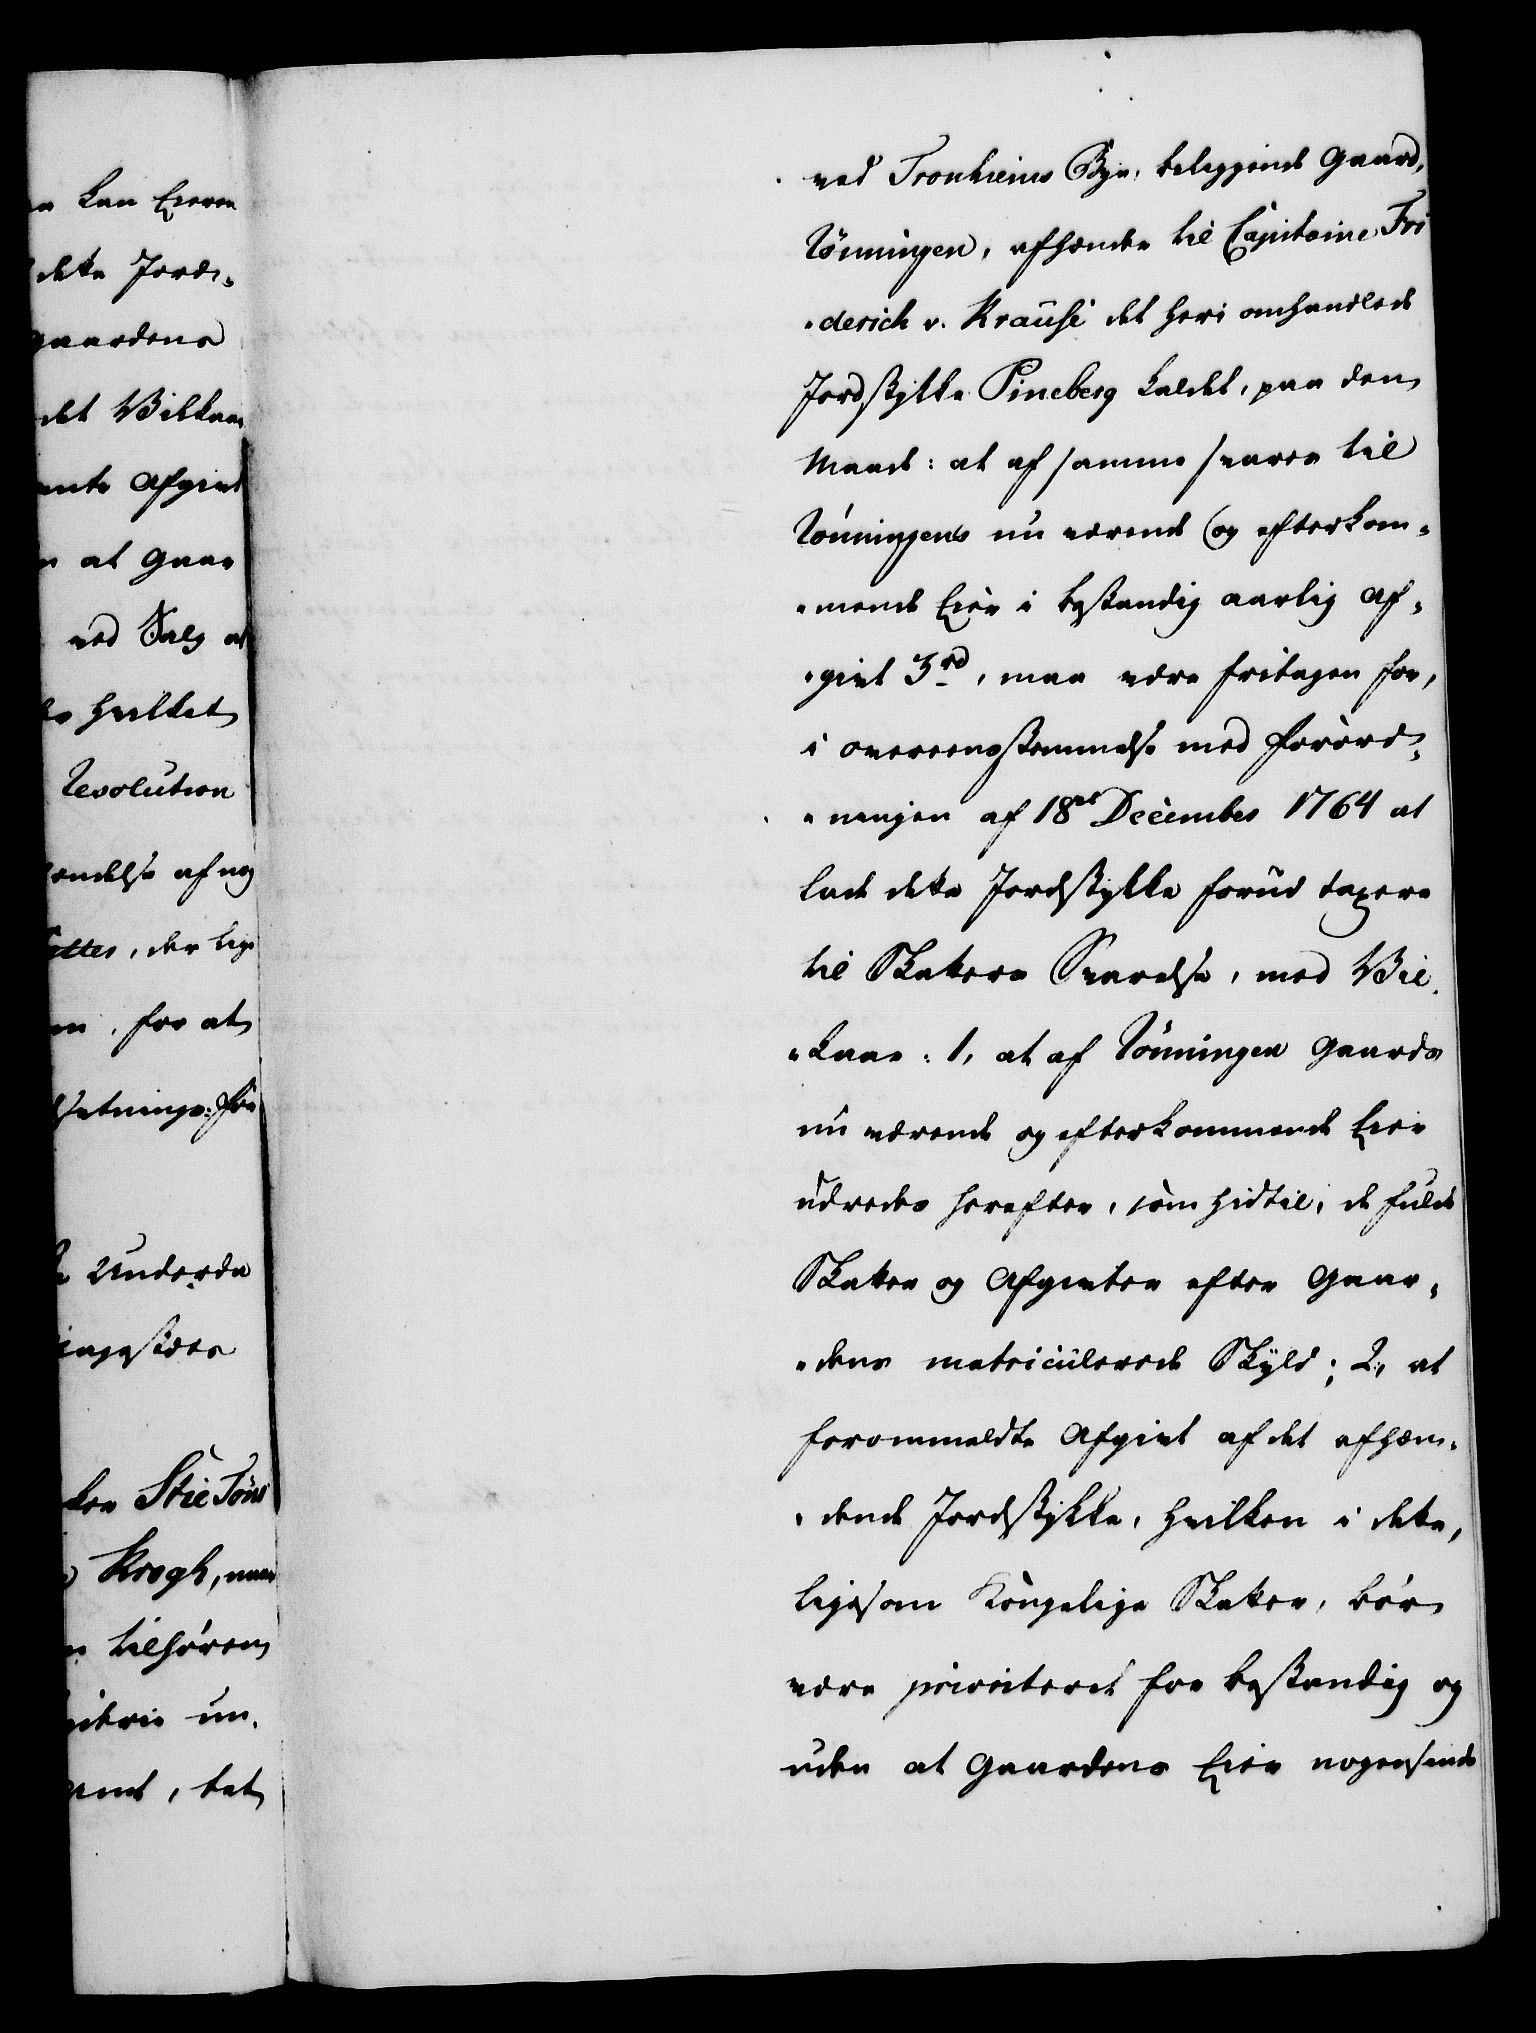 n kan Eieren
dette Jord-
gaardens
det Vilkaar
ente Afgivt
n at Gaar
ved Salg at
hvilket
Resolution
endelse af nog
ttes, der lige
en, for at
sætnings: For
Underda
Stie Töns
Krogh, naar
n tilhøren
un-
ved Tronhiems Bye, beliggende Gaard,
Rönningen, afhænder til Capitaine Fri
-derich v. Krause det heri omhandlede
Jordstykke Pineberg kaldet, paa den
Maade: at af samme svares til
Rönningens nu værende og efterkom-
-mende Eier i bestandig aarlig Af-
-givt 3 rd, maa være fritagen for,
i overeensstemmelse med Forord-
-ningen af 18de December 1764 at
lade dette Jordstykke forud taxere
til Skatters Svarelse, med Vil-
-kaar: 1, at af Rönningen Gaards
nu værende og efterkommende Eier
udredes herefter, som hidtil, de fulde
Skatter og Afgivter efter Gaar-
-dens matriculerede Skyld; 2, at
forommeldte Afgivt af det afhæn-
-dende Jordstykke, hvilken i dette,
ligesom Kongelige Skatter, bör
være prioriteret for bestandig og
uden at Gaardens Eier nogensinde